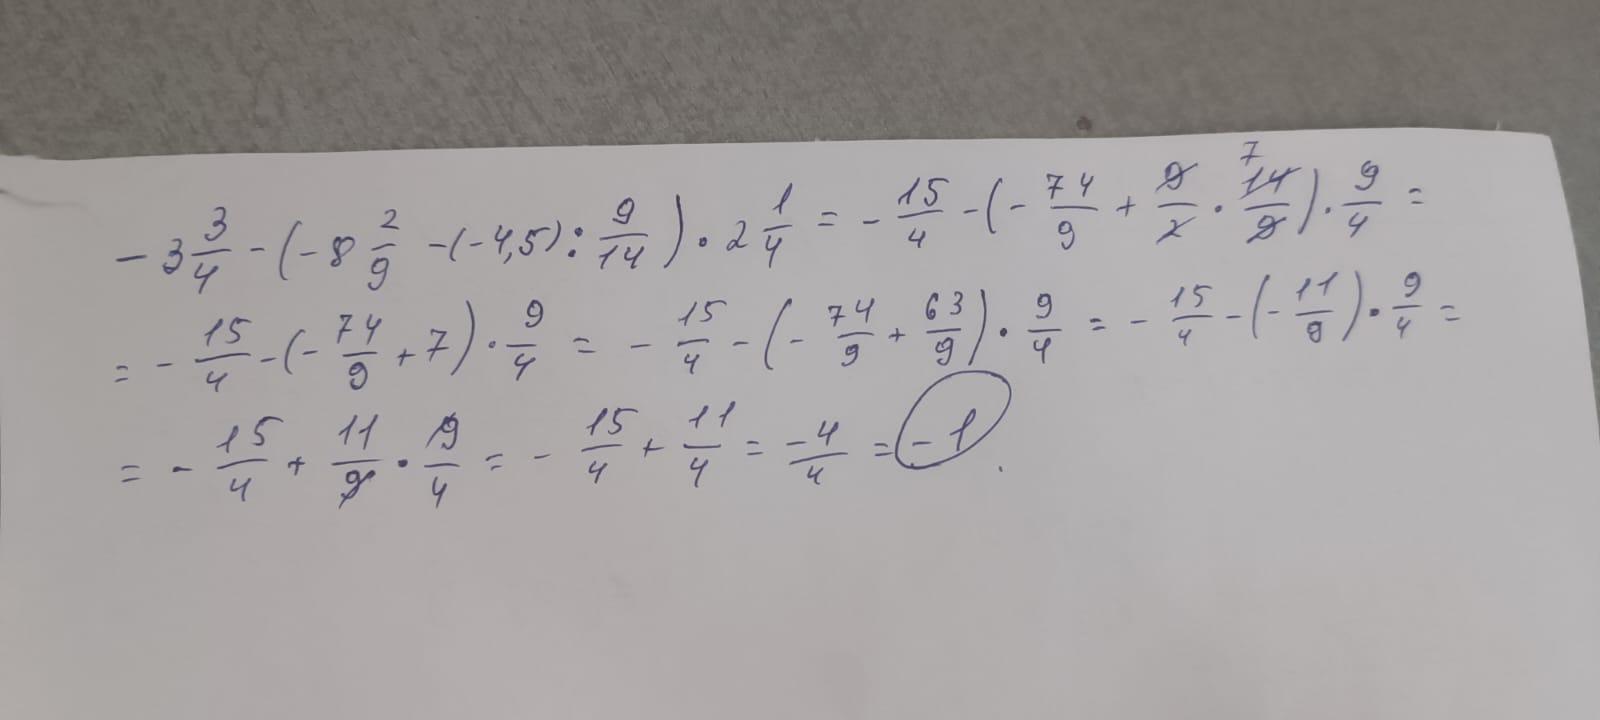 -3 3/4 - (-8 2/9 - (-4,5) : 9/14) · 2 1/4 = - 15/4 - (- 74/9 + 9/2 · 14/9 7) · 9/4 =
= - 15/4 - (- 74/9 + 7) · 9/4 = - 15/4 - (- 74/9 + 63/9) · 9/4 = - 15/4 - (- 11/9) · 9/4 =
= - 15/4 + 11/9 · 9/4 = - 15/4 + 11/4 = -4/4 = -1.